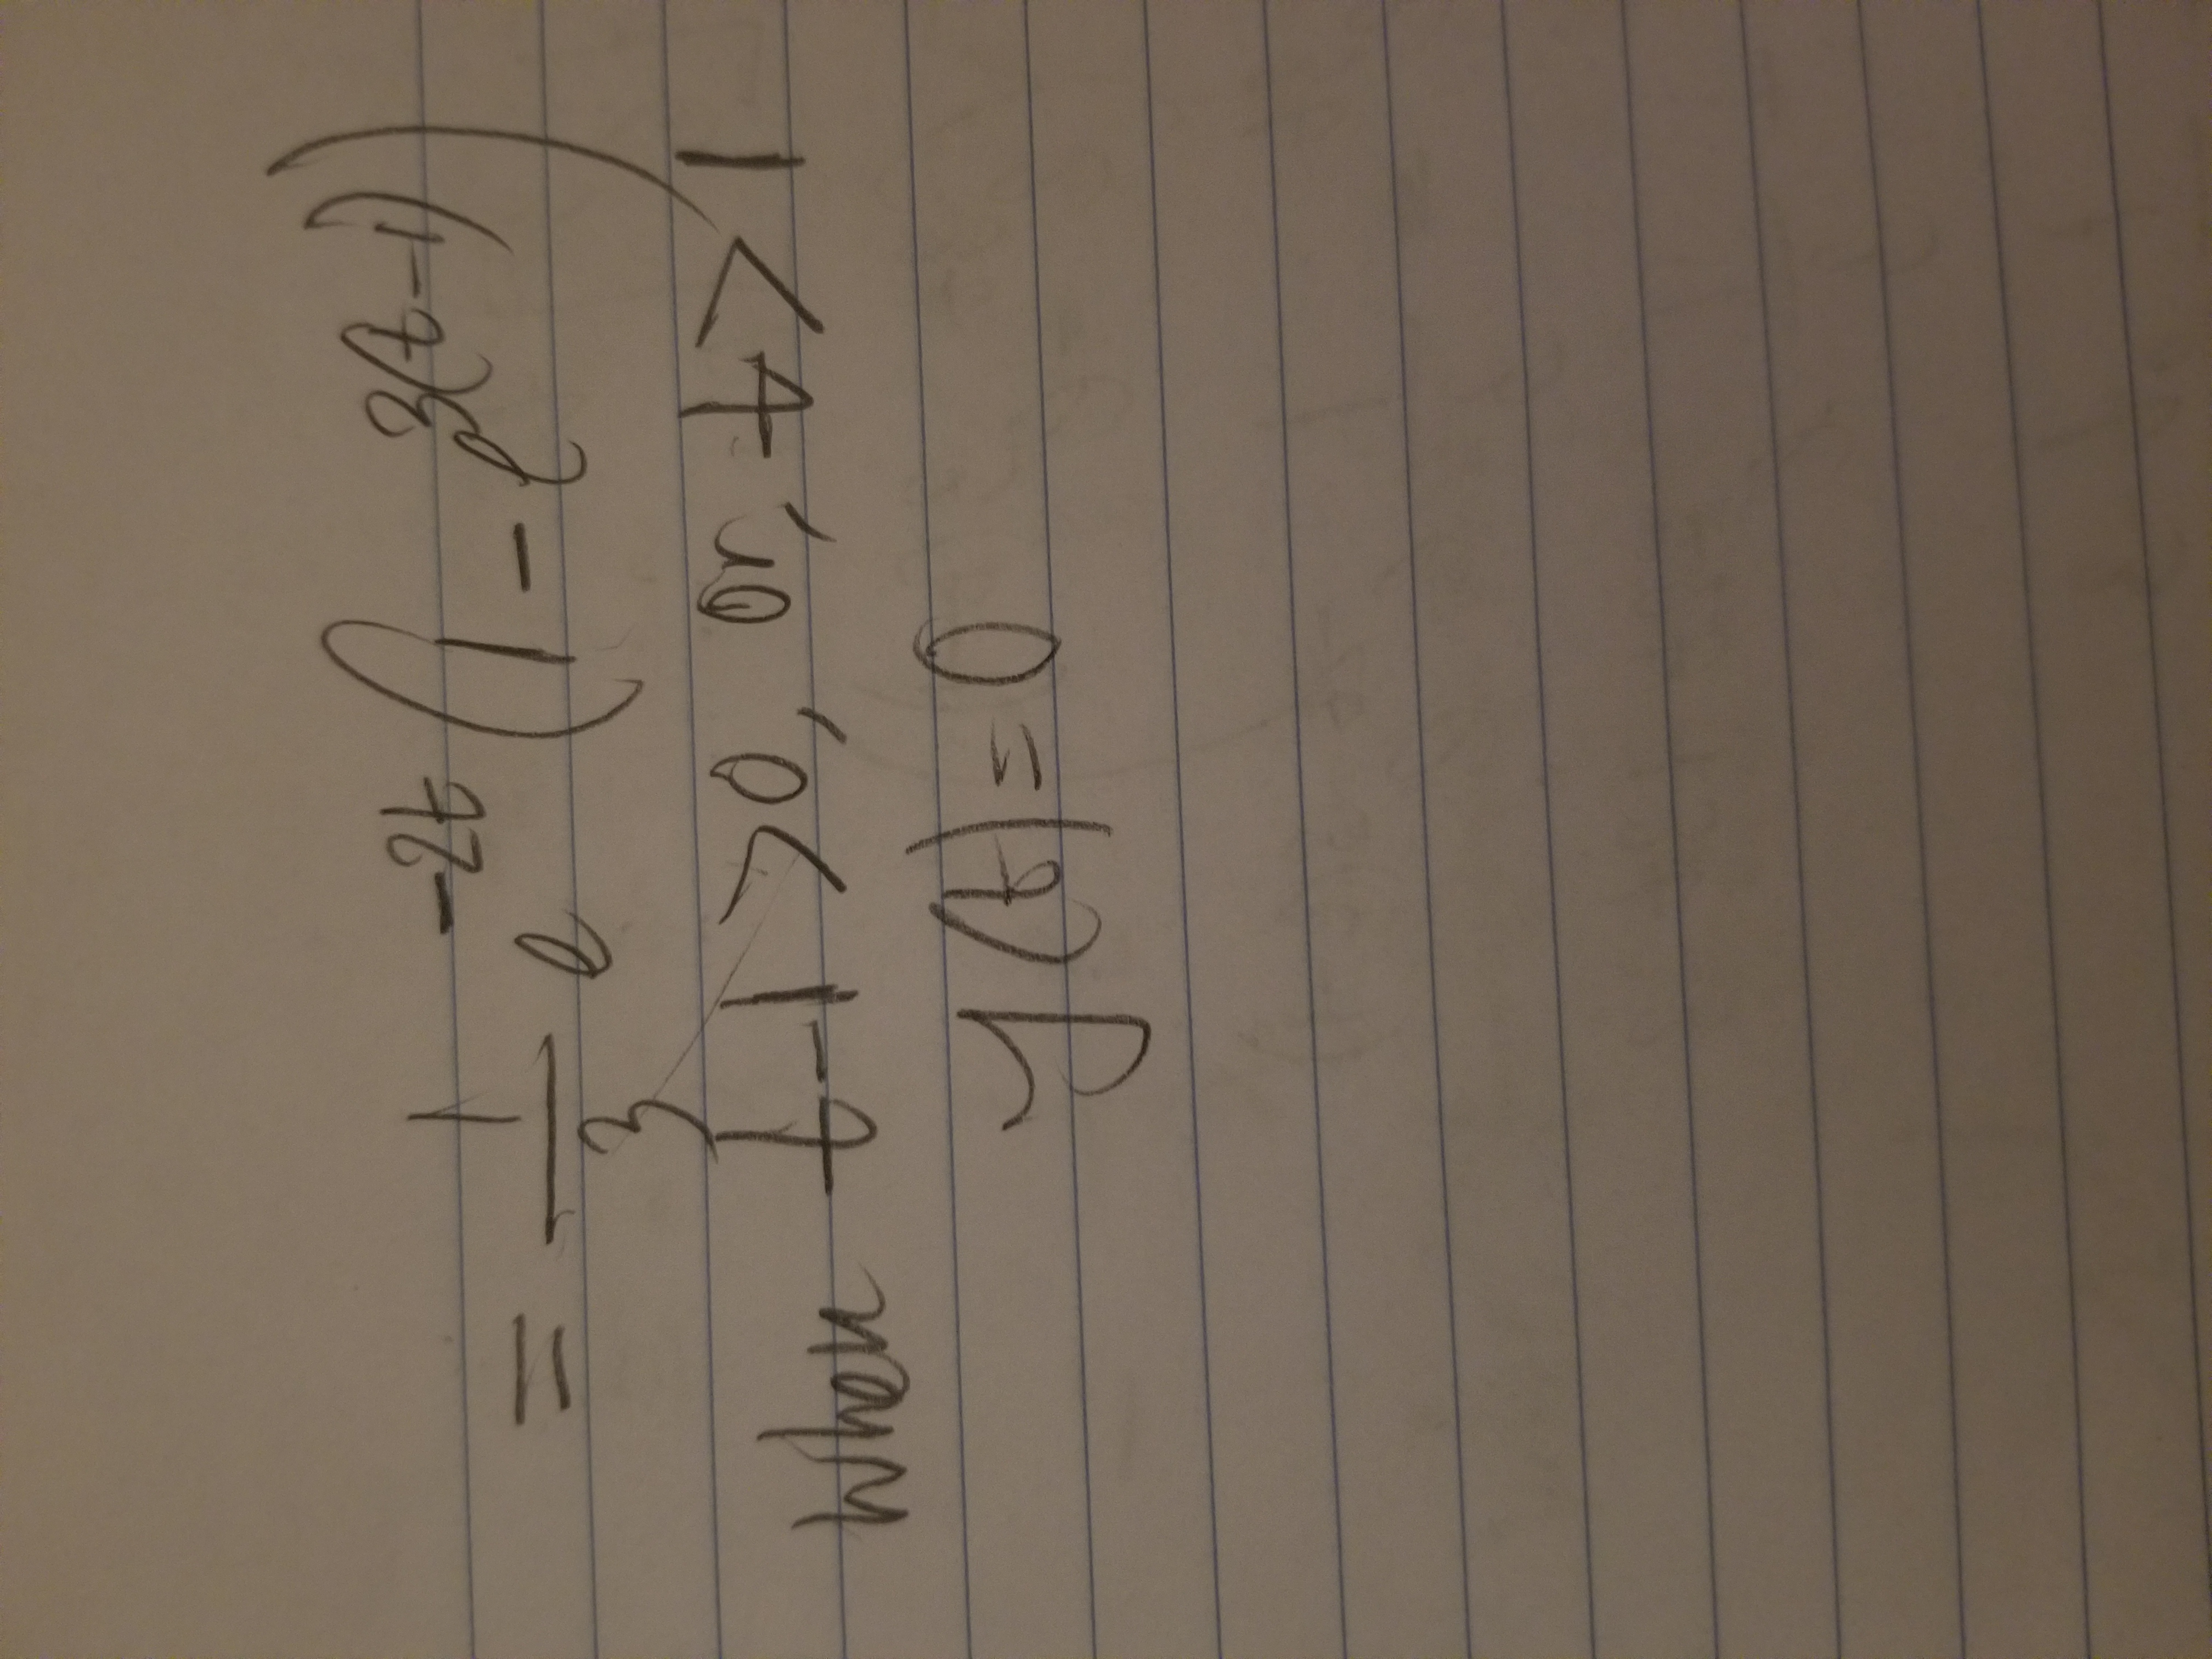 = 1/3 e^-2t (1 - e^3(t-1))
when t-1 >0, or, t > 1
y(t) = 0